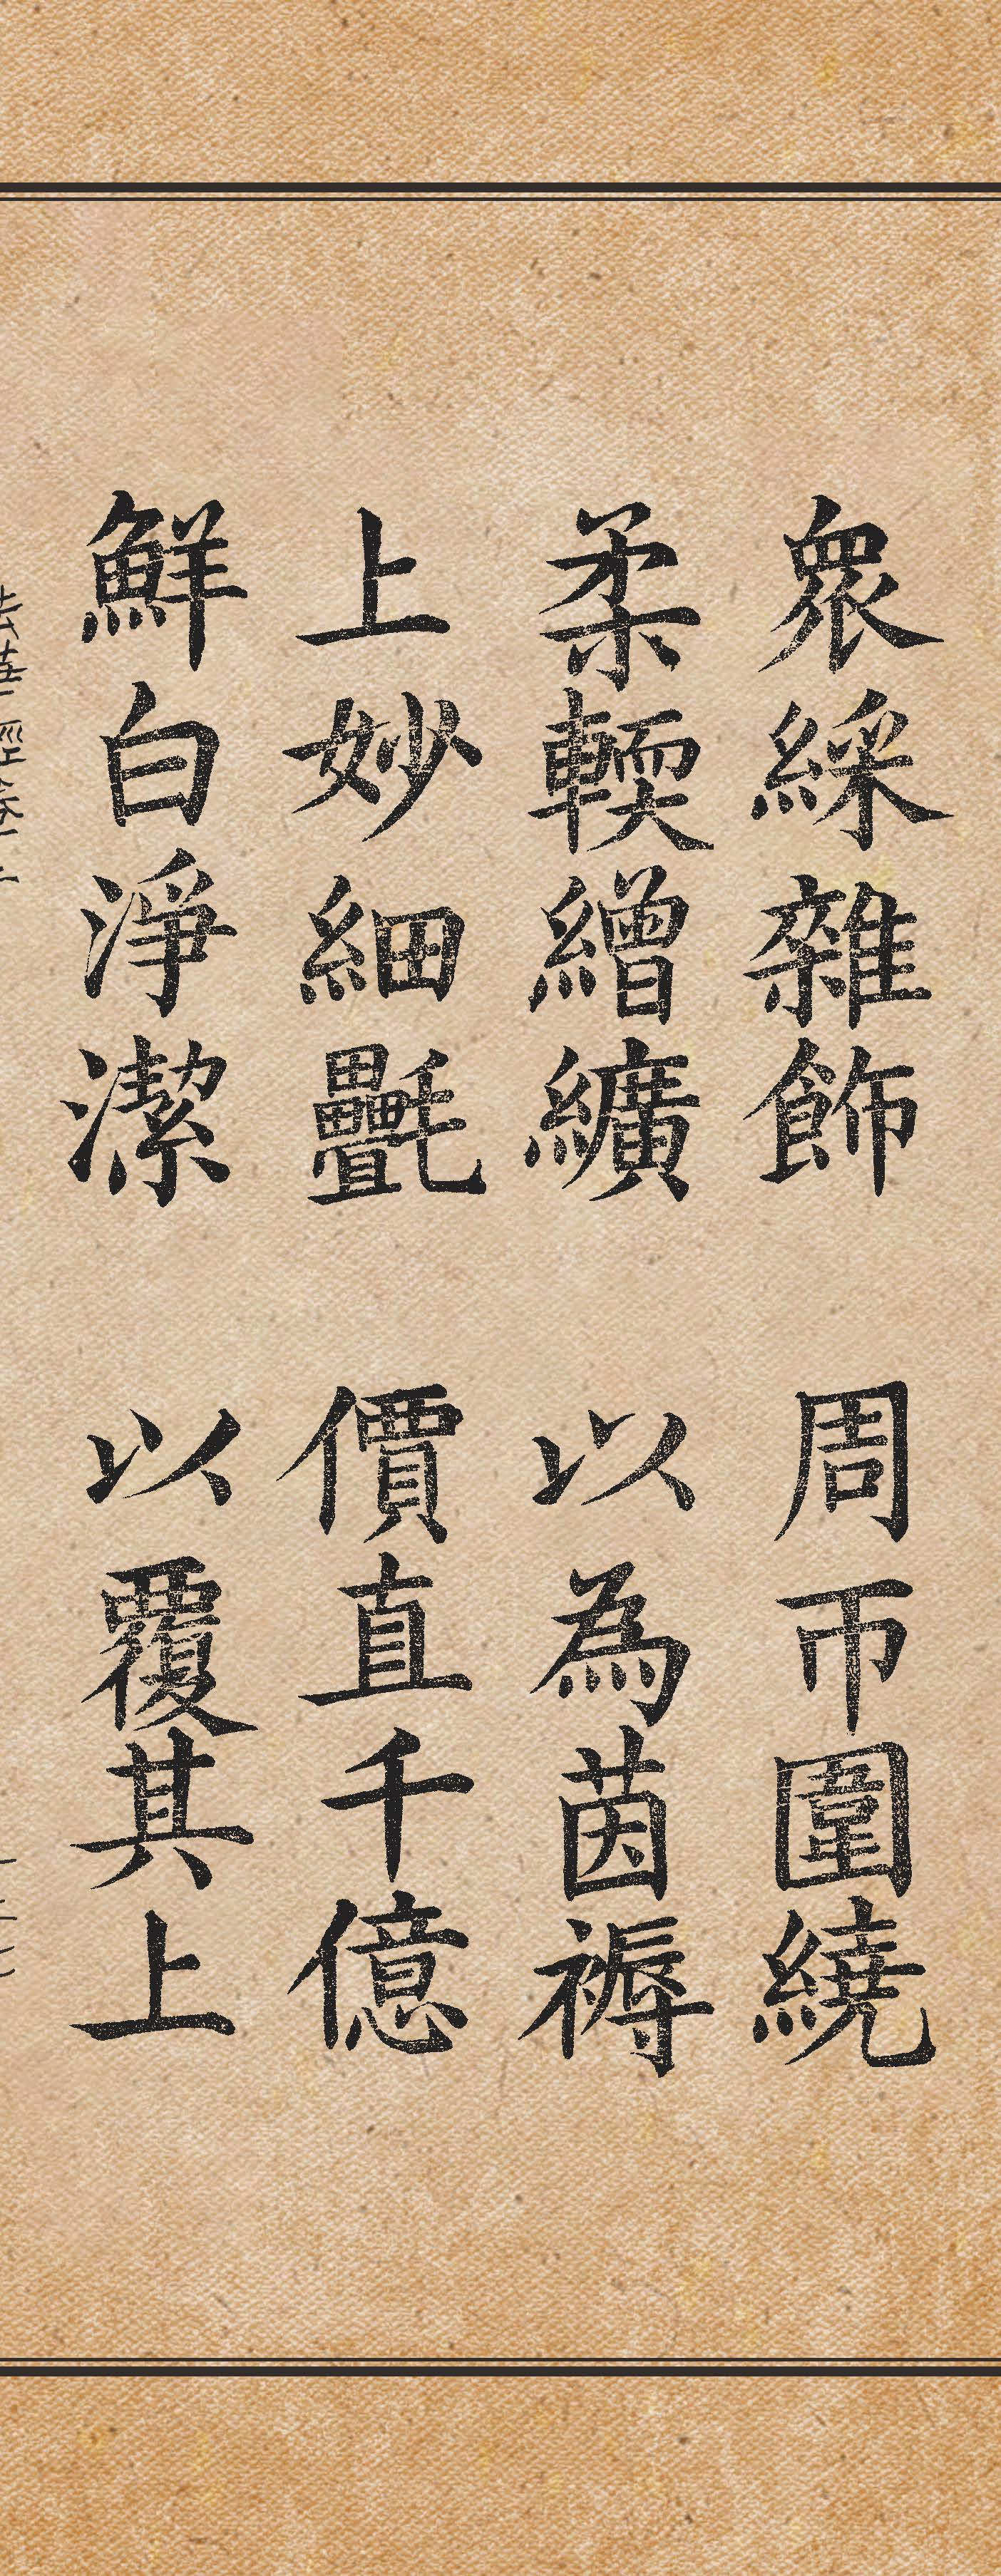 衆綵雜飾 周帀圍繞
柔輭繒纊 以為茵褥
上妙細氎 價直千億
鮮白淨潔 以覆其上